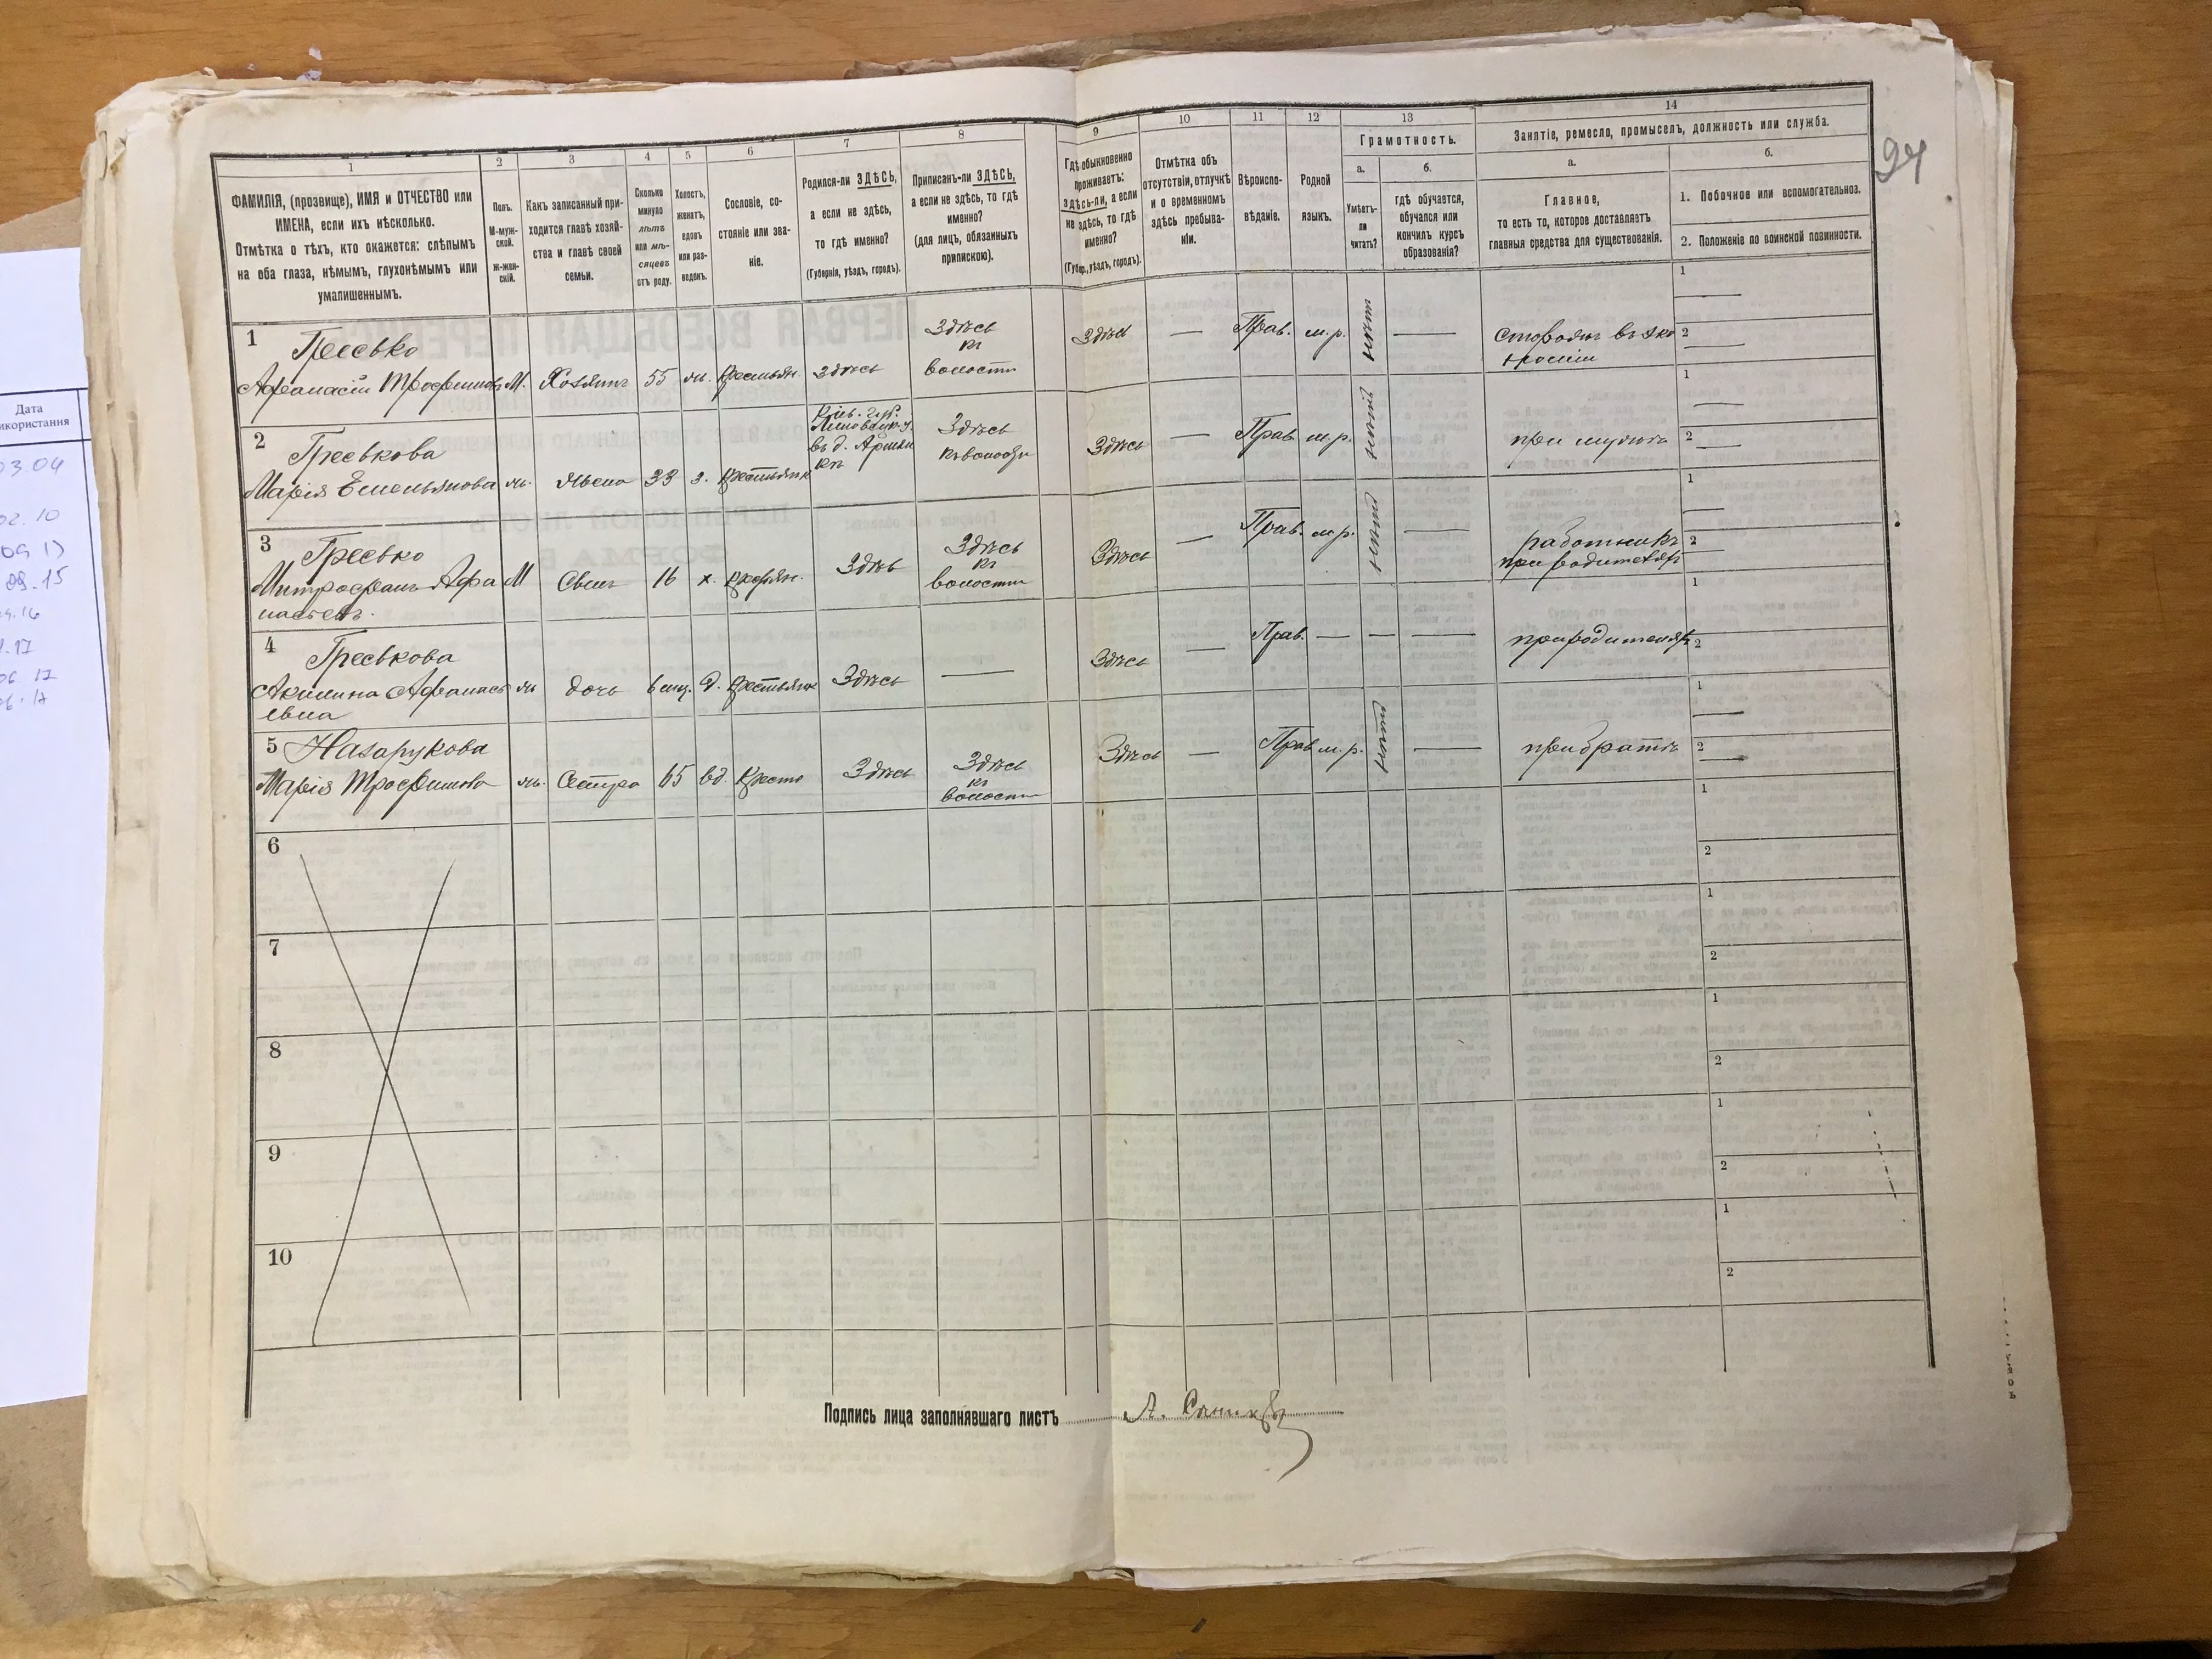 94
1
2
3
4
5
6
7
8
9
10
11
12
13
14
ФАМИЛІЯ, (прозвище), ИМЯ и ОТЧЕСТВО или
ИМЕНА, если ихъ нѣсколько.
Отмѣтка о тѣхъ, кто окажется: слѣпымъ
на оба глаза, нѣмымъ, глухонѣмымъ или
умалишеннымъ.
Полъ.
М-муж-
ской.
Ж-жен-
скій.
Какъ записанный при-
ходится главѣ хозяй-
ства и главѣ своей
семьи.
Сколько
минуло
лѣтъ
или мѣ-
сяцевъ
отъ роду.
Холостъ,
женатъ,
вдовъ
или раз-
веденъ.
Сословіе, со-
стояніе или зва-
ніе.
Родился-ли ЗДѢСЬ,
а если не здѣсь,
то гдѣ именно?
(Губернія, уѣздъ, городъ).
Приписанъ-ли ЗДѢСЬ,
а если не здѣсь, то гдѣ
именно?
(для лицъ, обязанныхъ
припискою).
Гдѣ обыкновенно
проживаетъ:
здѣсь-ли, а если
не здѣсь, то гдѣ
именно?
(Губер., уѣздъ, городъ).
Отмѣтка объ
отсутствіи, отлучкѣ
и о временномъ
здѣсь пребыва-
ніи.
Вѣроиспо-
вѣданіе.
Родной
языкъ.
Грамотность.
а.
б.
Умѣетъ-
ли
читать?
гдѣ обучается,
обучался или
кончилъ курсъ
образованія?
Занятіе, ремесло, промыселъ, должность или служба.
а.
б.
Главное,
то есть то, которое доставляетъ
главныя средства для существованія.
1. Побочное или вспомогательное.
2. Положеніе по воинской повинности.
1
Гресько
Афанасій Трофимовъ М. Хозяинъ 55 ж. Крестьян. здѣсь
Здѣсь
къ
волости
Здѣсь — Прав. м.р. нѣтъ —
1
2
2
Греськова
Марія Емельянова ж. Жена 33 з.
Кіев. губ.
Здѣсь
Здѣсь — Прав. м.р. нѣтъ
при мужѣ
1
2
3
Гресько
Митрофанъ Афа М Сынъ 16 х. Здѣсь
насьевъ.
Здѣсь
къ
волости
Здѣсь — Прав. м.р. нѣтъ —
работникъ
при родителях
1
2
4
Греськова
Акилина Афанась ж дочь 6 мц. д. Здѣсь —
евна
Здѣсь — Прав. — — —
при родителях
1
2
5 Назарукова
Марія Трофимова ж. Сестра 65 вд. Кресто Здѣсь
Здѣсь
къ
волости
Здѣсь — Прав м.р. нѣтъ —
при братѣ
1
2
6
1
2
7
1
2
8
1
2
9
1
2
10
1
2
Подпись лица заполнявшаго листъ
Дата
икористання
03.04